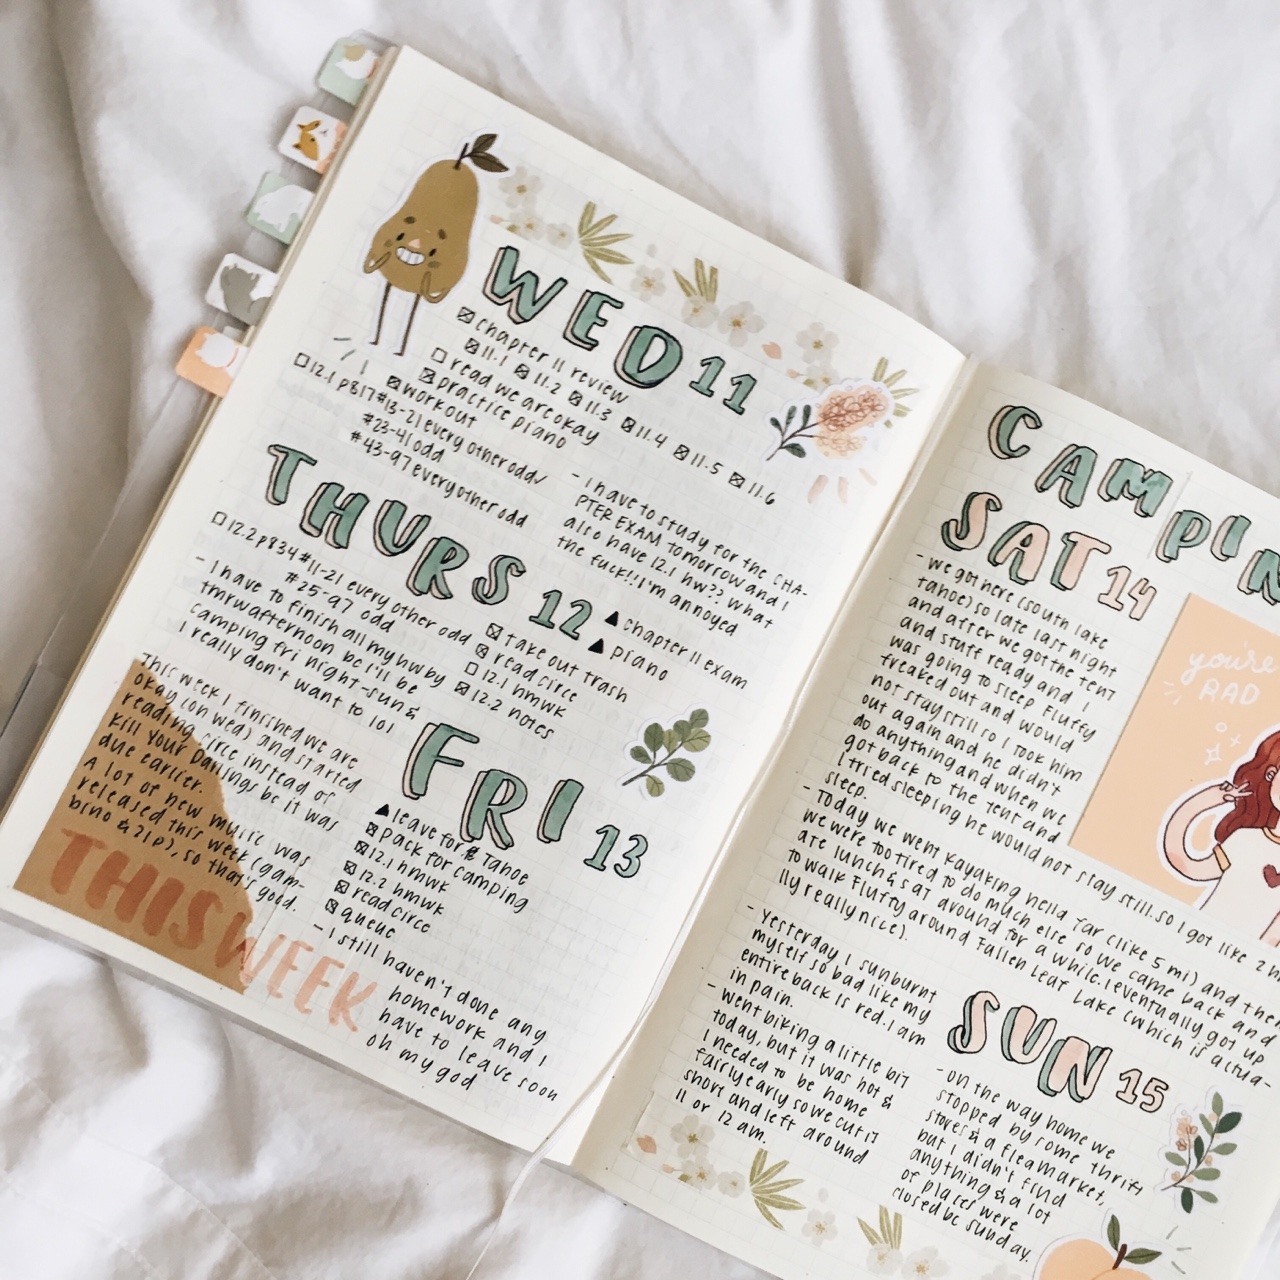 WED 11
☒ chapter 11 review
☒ 11.1 ☒ 11.2 ☒ 11.3 ☒ 11.4 ☒ 11.5 ☒ 11.6
☐ read we are okay
☒ practice piano
☒ workout
☐ 12.1 p817 #13-21 every other odd
#23-41 odd
#43-97 every other odd
- I have to study for the CHA-
PTER EXAM tomorrow and I
also have 12.1 hw?? What
the fuck!! I'm annoyed
THURS 12
▲ chapter 11 exam
▲ piano
☐ 12.2 p834 #11-21 every other odd
#25-97 odd
- I have to finish all my hw by
tmrw afternoon bc I'll be
camping fri night-sun &
I really don't want to lol
☒ take out trash
☒ read circe
☐ 12.1 hmwk
☒ 12.2 notes
FRI 13
▲ leave for Tahoe
☒ pack for camping
☒ 12.1 hmwk
☒ 12.2 hmwk
☒ read circe
☒ queue
- I still haven't done any
homework and I
have to leave soon
oh my god
This week I finished we are
okay (on wed) and started
reading circe instead of
Kill Your Darlings bc it was
due earlier.
A lot of new music was
released this week (gam-
bino & 21p), so that's good.
THIS WEEK
CAMPIN
SAT 14
- We got here (south lake
tahoe) so late last night
and after we got the tent
and stuff ready and I
was going to sleep Fluffy
freaked out and would
not stay still so I took him
out again and he didn't
do anything and when we
got back to the tent and
I tried sleeping he would not stay still. so I got like 2 h
sleep.
- Today we went kayaking hella far (like 5 mi) and then
we were too tired to do much else so we came back and
ate lunch & sat around for a while. I eventually got up
to walk Fluffy around Fallen Leaf Lake (which is actua-
lly really nice).
you're
RAD
- Yesterday I sunburnt
myself so bad like my
entire back is red. I am
in pain.
- Went biking a little bit
today, but it was hot &
I needed to be home
fairly early so we cut it
short and left around
11 or 12 am.
SUN 15
- on the way home we
stopped by some thrift
stores & a flea market,
but I didn't find
anything & a lot
of places were
closed bc Sunday.